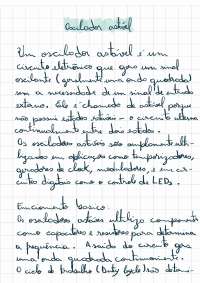 Oscilador astável
Um oscilador astável é um
circuito eletrônico que gera um sinal
oscilante (geralmente uma onda quadrada)
sem a necessidade de um sinal de entrada
externo. Ele é chamado de astável porque
não possui estados estáveis - o circuito alterna
continuamente entre dois estados.
Os osciladores astáveis são amplamente uti-
lizados em aplicações como temporizadores,
geradores de clock, moduladores, e em cir-
cuitos digitais como o controle de LEDs.
Funcionamento básico:
Os osciladores astáveis utilizam componentes
como capacitores e resistores para determinar
a frequência. A saída do circuito gera
uma onda quadrada continuamente.
O ciclo de trabalho (Duty Cycle)